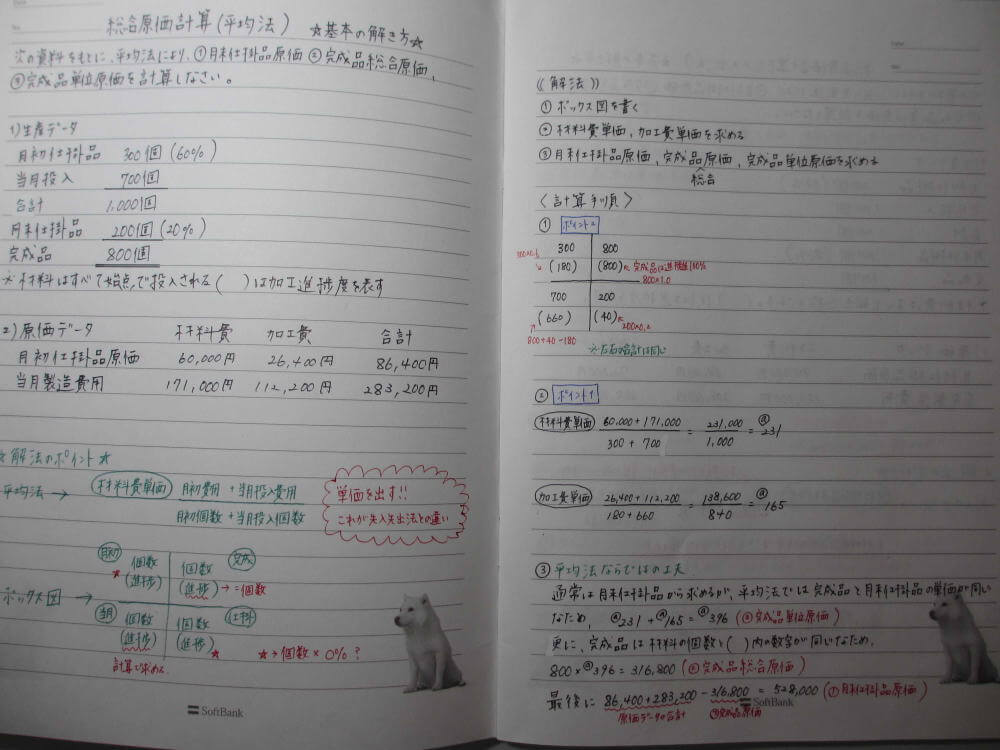 総合原価計算(平均法) ☆基本の解き方☆
次の資料をもとに、平均法により、①月末仕掛品原価 ②完成品総合原価、
③完成品単位原価を計算しなさい。
1)生産データ
月初仕掛品 300個(60%)
当月投入 700個
合計 1,000個
月末仕掛品 200個(20%)
完成品 800個
※材料はすべて始点で投入される ( )は加工進捗度を表す
2)原価データ 材料費 加工費 合計
月初仕掛品原価 60,000円 26,400円 86,400円
当月製造費用 171,000円 112,200円 283,200円
☆解法のポイント☆
平均法→ 材料費単価 月初費用+当月投入費用
月初個数+当月投入個数
単価を出す!!
これが先入先出法との違い
月初 個数 個数 完成
★(進捗) (進捗)→=個数
ボックス図→
当月 個数 個数 仕掛
(進捗) (進捗)★
計算で求める ★→個数×0%?
SoftBank
《解法》
①ボックス図を書く
②材料費単価,加工費単価を求める
③月末仕掛品原価,完成品原価,完成品単位原価を求める
総合
〈計算手順〉
① ポイント2
300 800
300×0.6
(180) (800) 完成品は進捗度100%
800×1.0
700 200
(660) (40) 200×0.2
800+40-180
※左右の合計は同じ
② ポイント1
材料費単価 60,000+171,000 / 300+700 = 231,000 / 1,000 = @231
加工費単価 26,400+112,200 / 180+660 = 138,600 / 840 = @165
③ 平均法ならではの工夫
通常は月末仕掛品から求めるが、平均法では完成品と月末仕掛品の単価が同じ
なため、@231+@165=@396(③完成品単位原価)
更に、完成品は材料の個数と( )内の数字が同じなため、
800×@396=316,800(②完成品総合原価)
最後に 86,400+283,200-316,800=528,000(①月末仕掛品原価)
原価データの合計 ②完成品原価
SoftBank